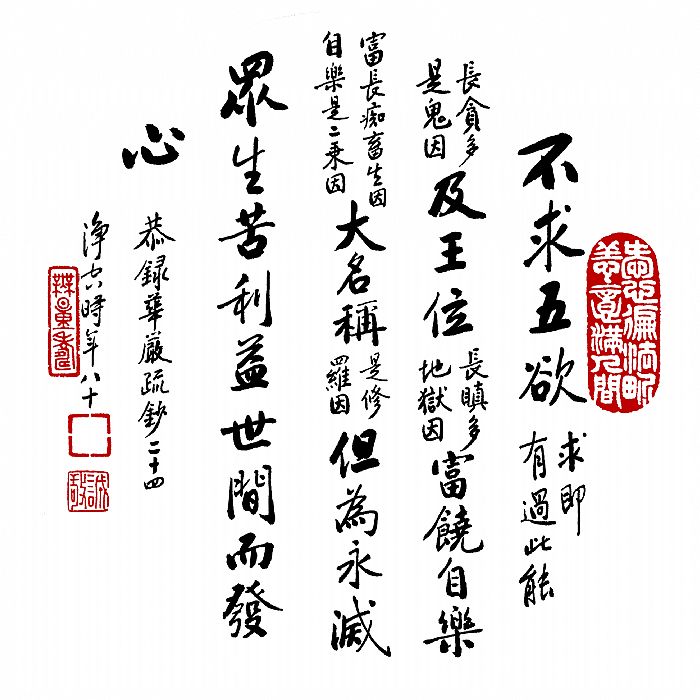 愛心遍法界
善意滿人間
不求五欲
求即
有過此能
長貪多
是鬼因
及王位
長瞋多
地獄因
富饒自樂
富長痴畜生因
自樂是二乘因
大名稱
是修
羅因
但為永滅
眾生苦利益世間而發
心
恭錄華嚴疏鈔二十四
淨空時年八十
無量壽
誠敬